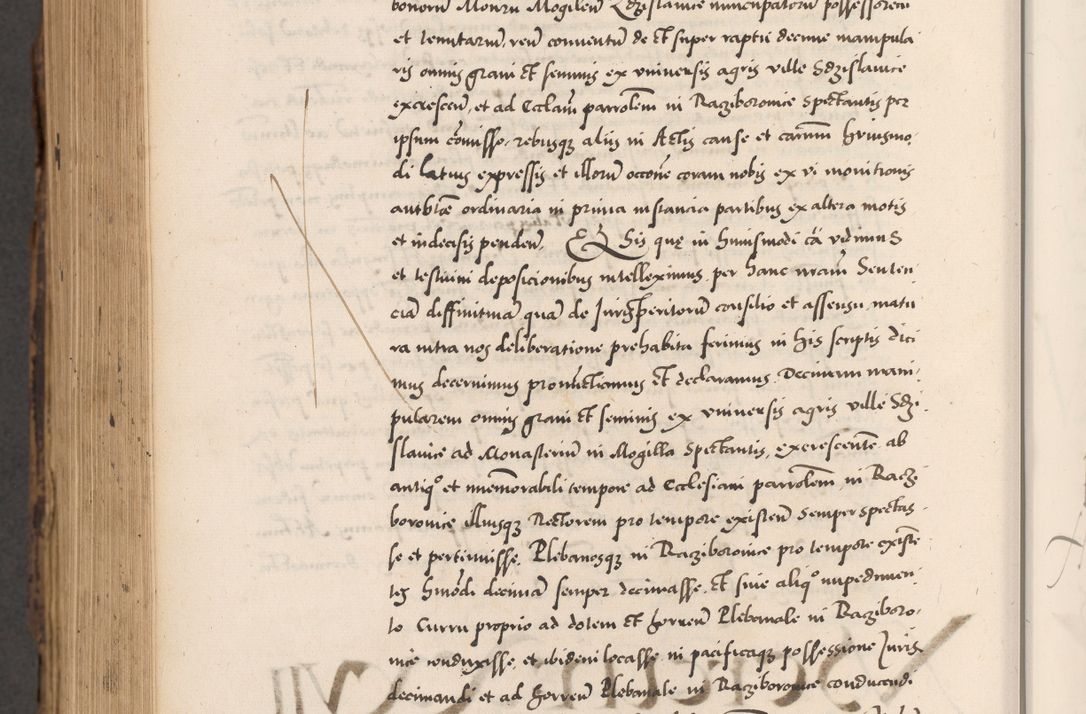 bonorū Monrū Mogilen̄ Sdzislauice nuncupatorū possessorem
et tenutariū, reū conuentū de et super raptu decime manipula
ris omnis grani et seminis ex vniuersis agris ville Sdzislauice
excrescen̄, et ad Ecclam̄ parrolem̄ in Racziborouice spectantis per
ipsum cōmisso, rebusqz alijs in Actis cause et carmm̄ hriusmo
di latius expressis et illorū occone coram nobis ex vi monitionis
auctte ordinaria in prima instancia partibus ex altera motis
et indecisis penden̄. Sis que in huiusmodi cā vidimus
et testium deposicionibus intelleximus per hanc nram̄ Senten
ciā diffinitiuā quā de Jurisperitorū consilio et assensu, matu
ra intra nos deliberatione prehabita ferimus in his scriptis dici
mus decernimus pronūctiamus et declaramus. Decimam mani-
pularem omnis grani et seminis ex vniuersis agris ville Sdzi-
slauice ad Monasteriū in Mogilla spectantis, excrescentē ab
antiqo et inmemorabili tempore ad Ecclesiam parrolem̄ in Raczi-
borouice illiusqz Rectorem pro tempore existen̄ semper spectas-
se et pertinuisse, Plebanosqz in Racziborouice pro tempore existē
tes hmōdi decimā semper decimasse, et siue aliqo impedimen-
to Curru proprio ad dotem et horreū Plebanale in Racziboro-
uice conduxisse, et ibidem locasse, in pacificaqz possessione Juris
decimandi et ad horreū Plebanale in Racziborouice conducendi